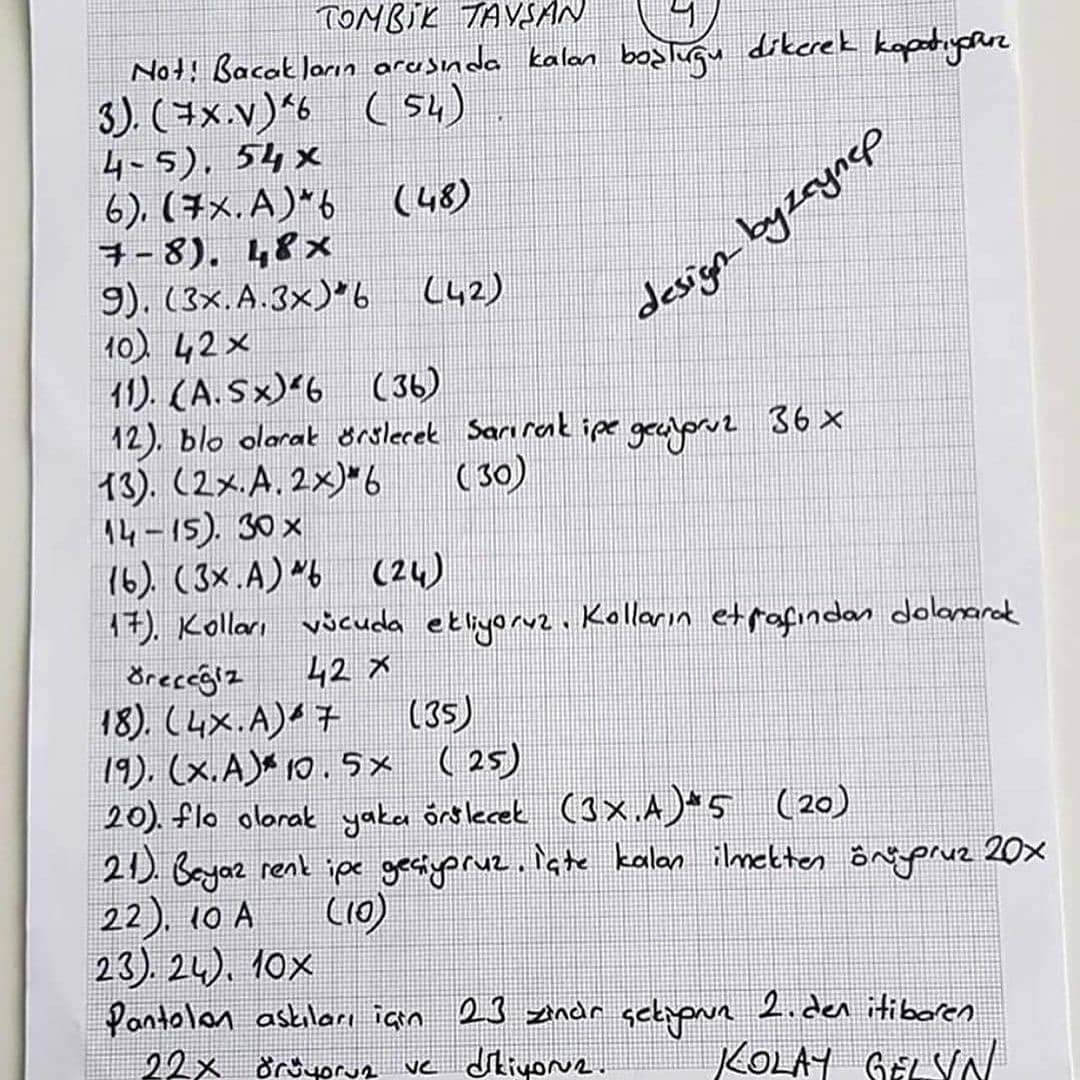 TOMBİK TAVŞAN 4
Not! Bacakların arasında kalan boşluğu dikerek kapatıyoruz
3). (7x.V)*6 (54)
4-5). 54x
6). (7x.A)*6 (48)
7-8). 48x
design_byzeynep
9). (3x.A.3x)*6 (42)
10) 42x
11). (A.5x)*6 (36)
12). blo olarak örülecek Sarı renk ipe geçiyoruz 36x
13). (2x.A.2x)*6 (30)
14-15). 30x
16). (3x.A)*6 (24)
17). Kolları vücuda ekliyoruz. Kolların etrafından dolanarak
öreceğiz 42 x
18). (4x.A)*7 (35)
19). (x.A)*10.5x (25)
20). flo olarak yaka örülecek (3x.A)*5 (20)
21). Beyaz renk ipe geçiyoruz. İçte kalan ilmekten örüyoruz 20x
22). 10 A (10)
23). 24). 10x
Pantolon askıları için 23 zincir çekiyoruz 2. den itibaren
22x örüyoruz ve dikiyoruz. KOLAY GELSİN